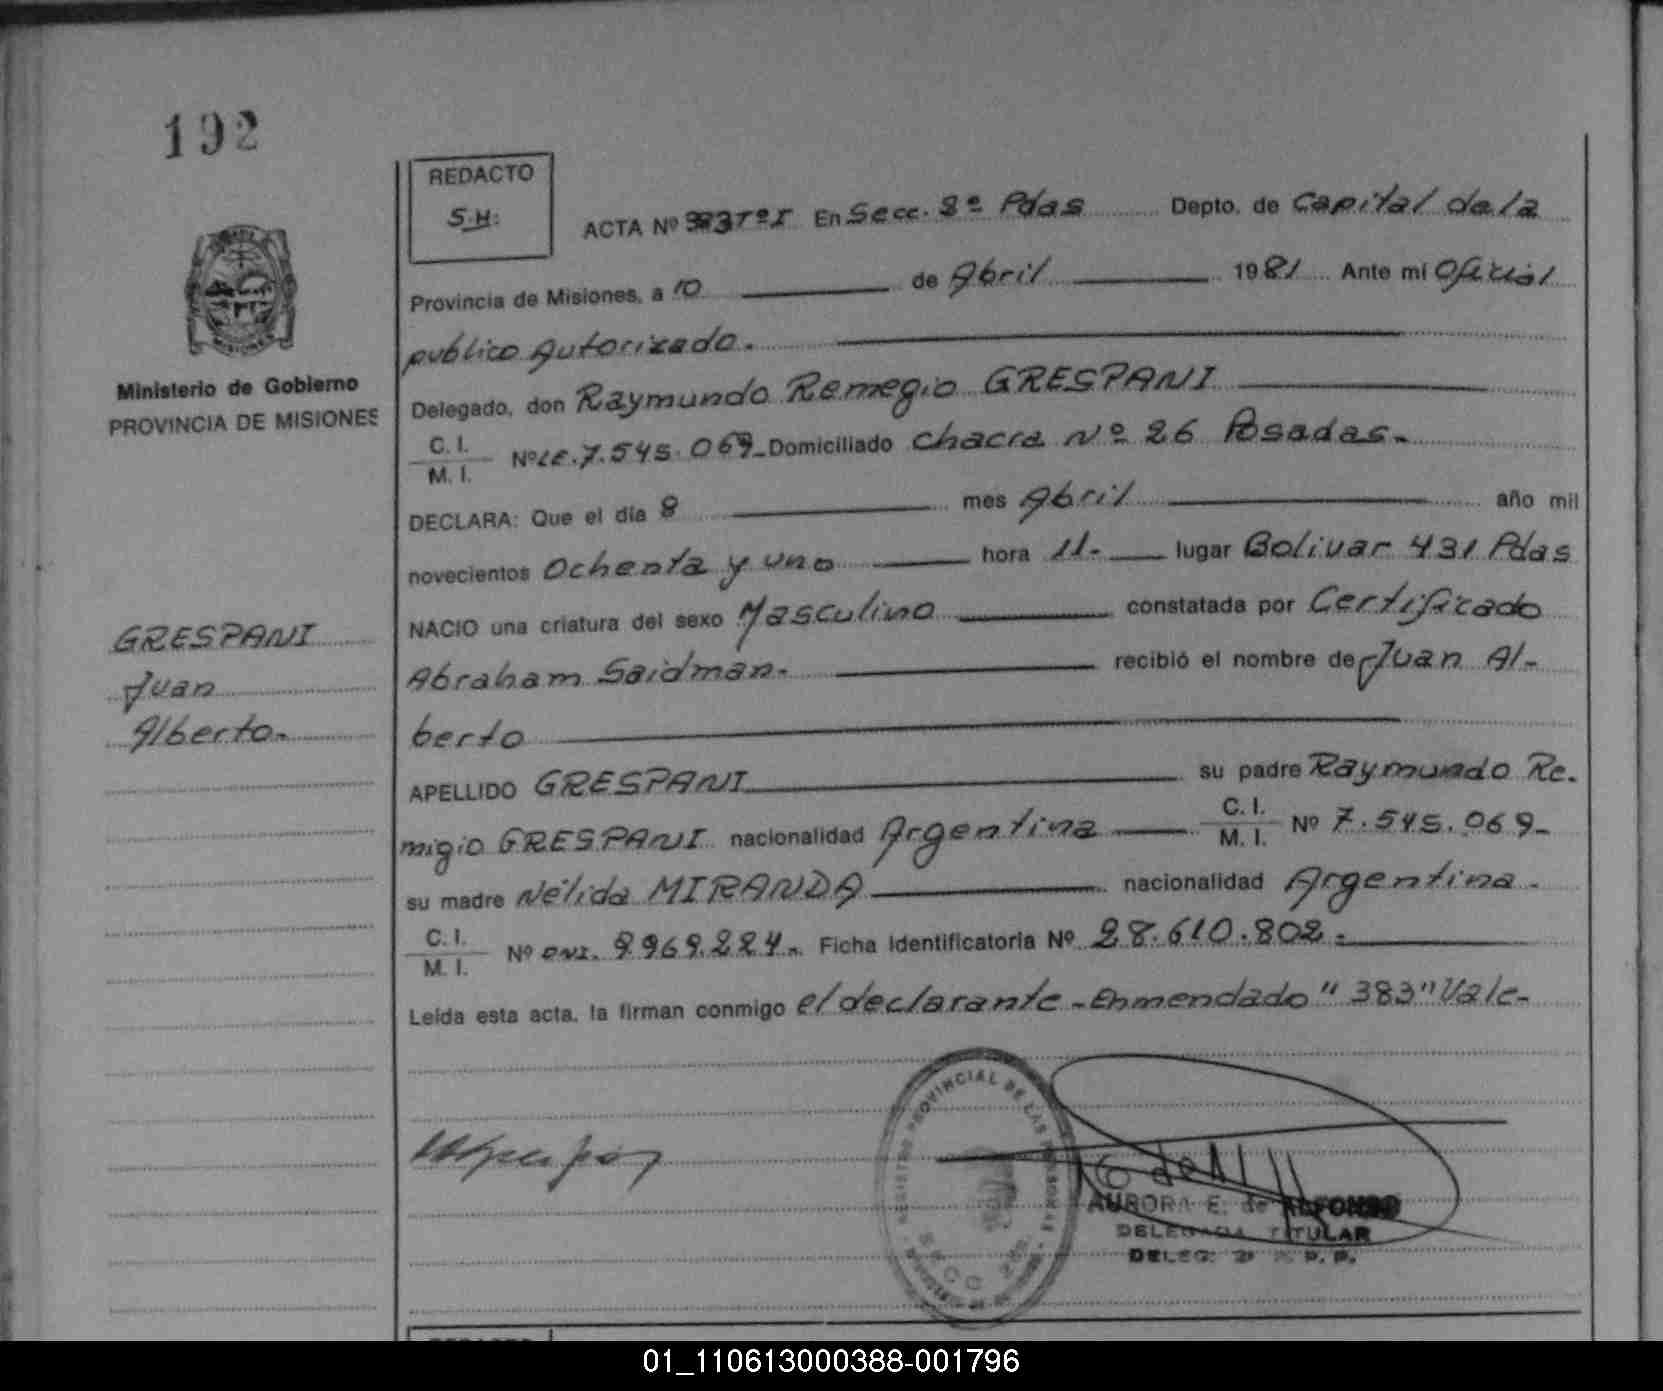 192
REDACTO
S.H:
ACTA Nº 383 Tº I En Secc. 2º Pdas Depto. de Capital de la
Provincia de Misiones, a 10 de Abril 1981 Ante mí Oficial
publico Autorizado.
Delegado, don Raymundo Remegio GRESPANI
C. I.
M. I. Nº LE. 7.545.069 Domiciliado Chacra Nº 26 Posadas.
DECLARA: Que el día 8 mes Abril año mil
novecientos Ochenta y uno hora 11.- lugar Bolivar 431 Pdas
NACIO una criatura del sexo Masculino constatada por Certificado
Abraham Saidman. recibió el nombre de Juan Al-
berto
APELLIDO GRESPANI su padre Raymundo Re-
migio GRESPANI nacionalidad Argentina C. I.
M. I. Nº 7.545.069-
su madre Nélida MIRANDA nacionalidad Argentina.
C. I.
M. I. Nº DNI. 9969.224. Ficha Identificatoria Nº 28.610.802.
Leída esta acta, la firman conmigo el declarante - Enmendado "383" Vale-
Ministerio de Gobierno
PROVINCIA DE MISIONES
GRESPANI
Juan
Alberto.
REGISTRO PROVINCIAL DE LAS PERSONAS
SECC
AURORA E. de ALFONSO
DELEGADA TITULAR
DELEG. 2ª R. P. P.
01_110613000388-001796